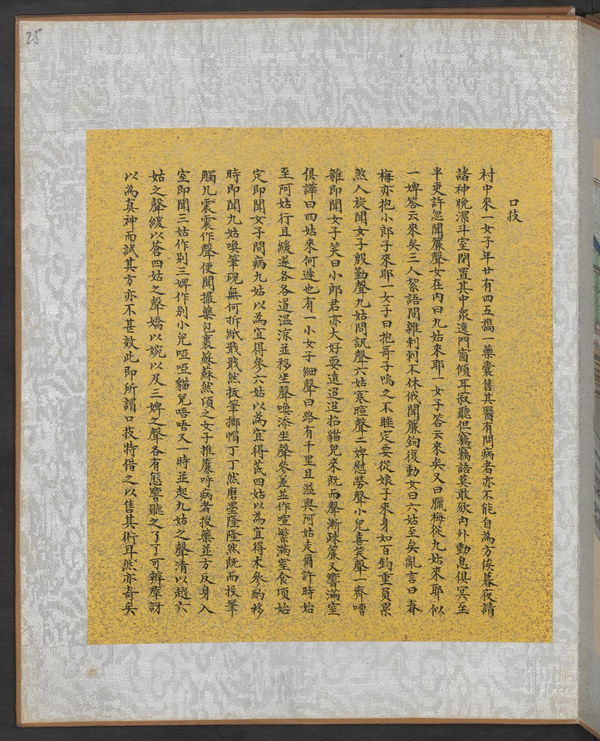 25
口技
村中來一女子年廿有四五攜一藥囊售其醫有問病者亦不能自為方俟暮夜請
諸神晚潔斗室閉置其中眾遶門窗傾耳寂聽但竊竊語莫敢欬內外動息俱冥至
半更許忽聞簾聲女在內曰九姑來耶一女子答云來矣又曰臘梅從九姑來耶似
一婢答云來矣三人絮語間雜刺刺不休俄聞簾鉤復動女曰六姑至矣亂言曰春
梅亦抱小郎子來耶一女子曰抱哥子嗚之不睡定要從娘子來身如百鈞重負累
煞人旋聞女子殷勤聲九姑問訊聲六姑寒暄聲二婢慰勞聲小兒喜笑聲一齊嘈
雜即聞女子笑曰小郎君亦大好耍遠迢迢抱貓兒來既而聲漸疎簾又響滿室
俱譁曰四姑來何遲也有一小女子細聲曰路有千里且溢與阿姑走爾許時始
至阿姑行且緩遂各各道溫涼並移坐聲喚添坐聲參差並作喧繁滿室食頃始
定即聞女子問病九姑以為宜得參六姑以為宜得芪四姑以為宜得朮參酌移
時即聞九姑喚筆硯無何折紙戢戢然拔筆擲帽丁丁然磨墨隆隆然既而投筆
觸几震震作聲便聞撮藥包裹蘇蘇然頃之女子推簾呼病者授藥並方反身入
室即聞三姑作別三婢作別小兒啞啞貓兒唔唔又一時並起九姑之聲清以越六
姑之聲緩以蒼四姑之聲嬌以婉以及三婢之聲各有態響聽之了了可辨羣訝
以為真神而試其方亦不甚效此即所謂口技特借之以售其術耳然亦奇矣